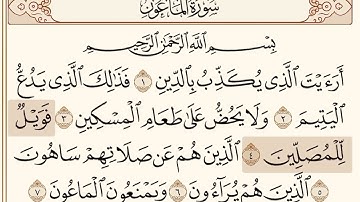 سُورَةُ المَاعُونَ
بِسْمِ اللَّهِ الرَّحْمَٰنِ الرَّحِيمِ
أَرَءَيْتَ الَّذِي يُكَذِّبُ بِالدِّينِ ١ فَذَٰلِكَ الَّذِي يَدُعُّ
الْيَتِيمَ ٢ وَلَا يَحُضُّ عَلَىٰ طَعَامِ الْمِسْكِينِ ٣ فَوَيْلٌ
لِّلْمُصَلِّينَ ٤ الَّذِينَ هُمْ عَن صَلَاتِهِمْ سَاهُونَ
٥ الَّذِينَ هُمْ يُرَاءُونَ ٦ وَيَمْنَعُونَ الْمَاعُونَ ٧